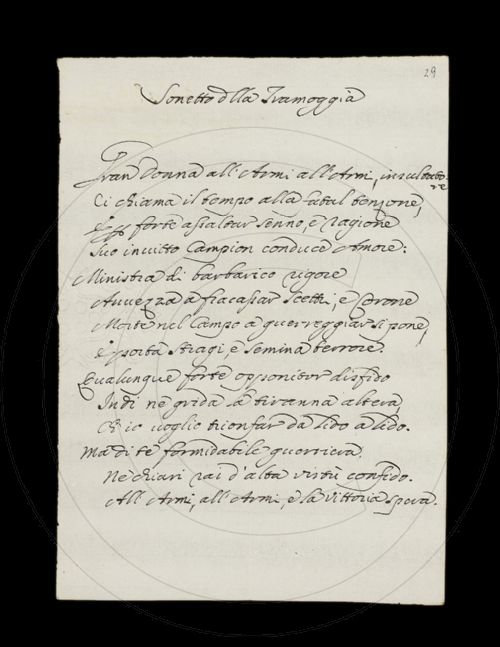 29
Sonetto dlla Tramoggia
Gran Donna all'Armi all'Armi, in
Ci chiama il tempo alla fatal tenzone,
e forte assaltar senno, e ragione
Suo invitto Campion conduce Amore:
Ministra di barbarico rigore
Avvezza a fracassar Scettri, e Corone
Morte nel Campo a guerreggiar si pone,
e porta stragi e semina terrore.
Qualunque forte opponitor disfido
Indi ne grida la tiranna altera,
Ch'io voglio trionfar da lido a lido.
Ma di te formidabile guerriera
Ne' chiari rai d'alta virtù confido.
All'Armi, all'Armi, e la Vittoria spera.